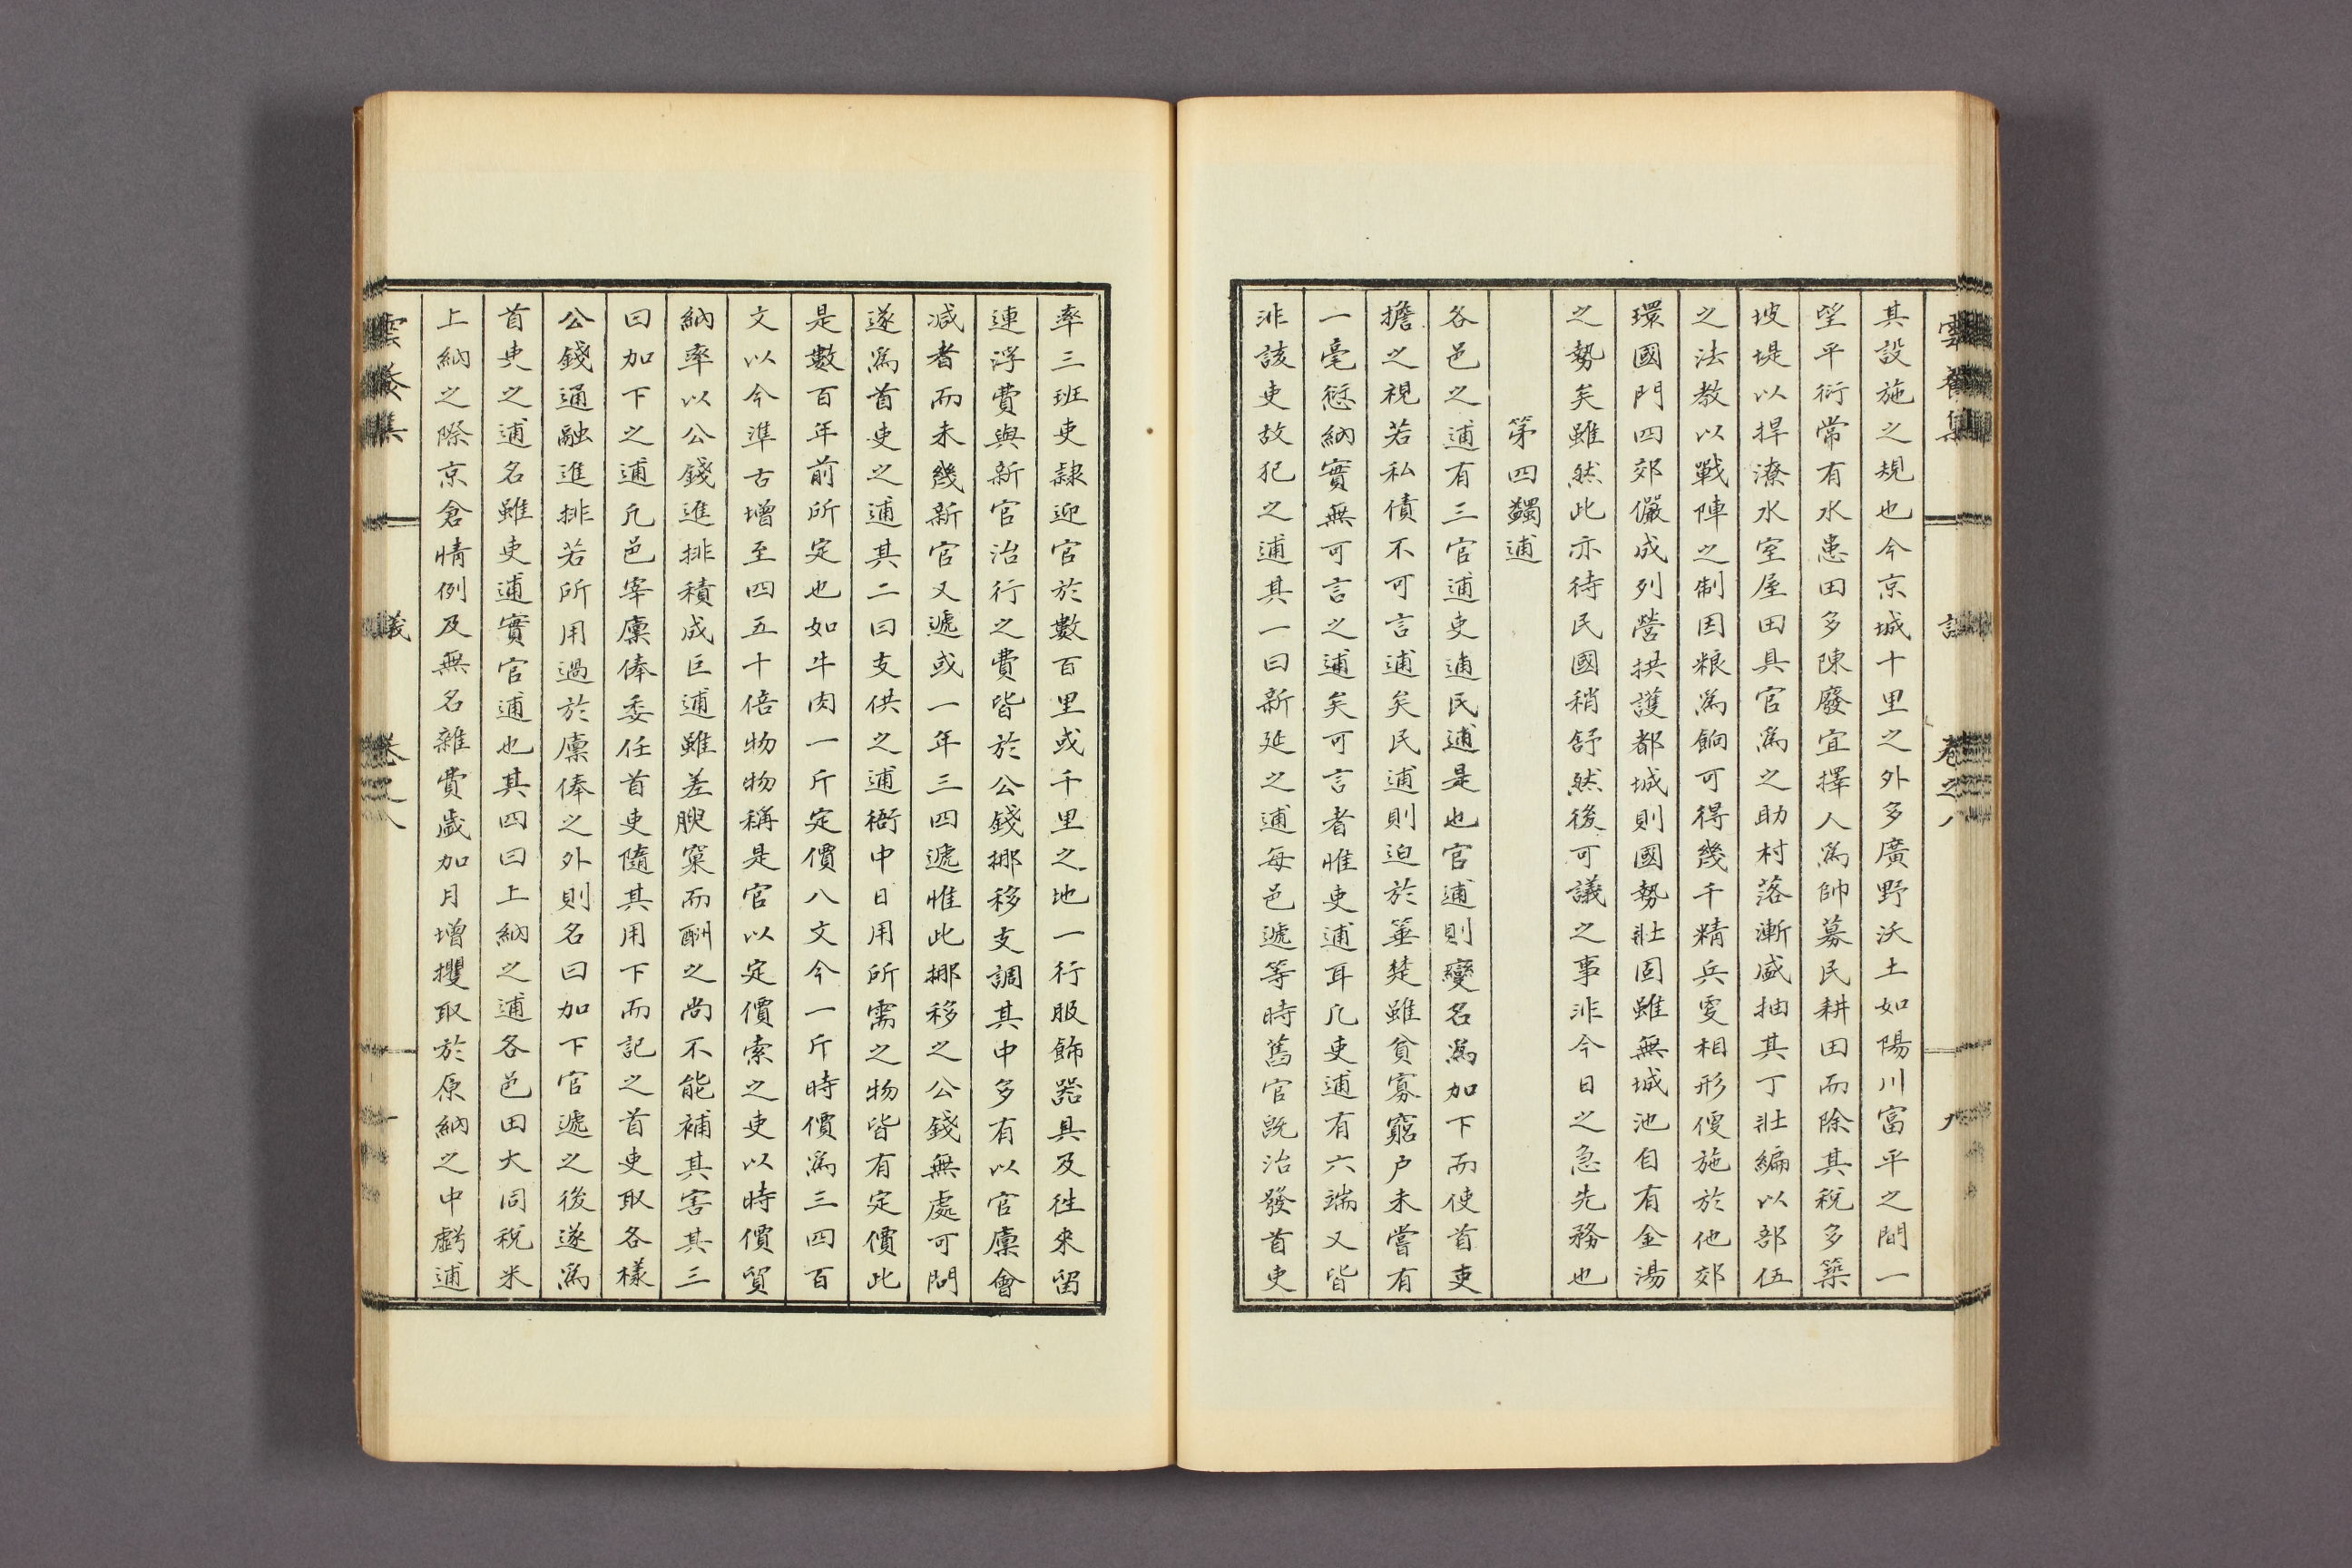 其設施之規也今京城十里之外多廣野沃土如陽川富平之間一
望平衍常有水患田多陳廢宜擇人爲帥募民耕田而除其稅多築
坡堤以捍潦水室屋田具官爲之助村落漸盛抽其丁壯編以部伍
之法教以戰陣之制因粮爲餉可得幾千精兵雯相形便施於他郊
環國門四郊儼成列營拱護都城則國勢壯固雖無城池自有金湯
之勢矣雖然此亦待民國稍舒然後可議之事非今日之急先務也
第四蠲逋
各邑之逋有三官逋吏逋民逋是也官逋則變名爲加下而使首吏
擔之視若私債不可言逋矣民逋則迫於箠楚雖貧寡窮户未嘗有
一毫愆納實無可言之逋矣可言者惟吏逋耳凡吏逋有六端又皆
非該吏故犯之逋其一曰新延之逋每邑遞等時舊官旣治發首吏
率三班吏隷迎官於數百里或千里之地一行服飾器具及徃來留
連浮費與新官治行之費皆於公錢挪移支調其中多有以官廩會
减者而未幾新官又遞或一年三四遞惟此挪移之公錢無處可問
遂爲首吏之逋其二曰支供之逋衙中日用所需之物皆有定價此
是數百年前所定也如牛肉一斤定價八文今一斤時價爲三四百
文以今準古增至四五十倍物物稱是官以定價索之吏以時價貿
納率以公錢進排積成巨逋雖差腴窠而酬之尚不能補其害其三
曰加下之逋凡邑宰廩俸委任首吏隨其用下而記之首吏取各樣
公錢通融進排若所用過於廩俸之外則名曰加下官遞之後遂爲
首吏之逋名雖吏逋實官逋也其四曰上納之逋各邑田大同稅米
上納之際京倉情例及無名雜費歲加月增攫取於原納之中虧逋
雲養集 議 卷之八